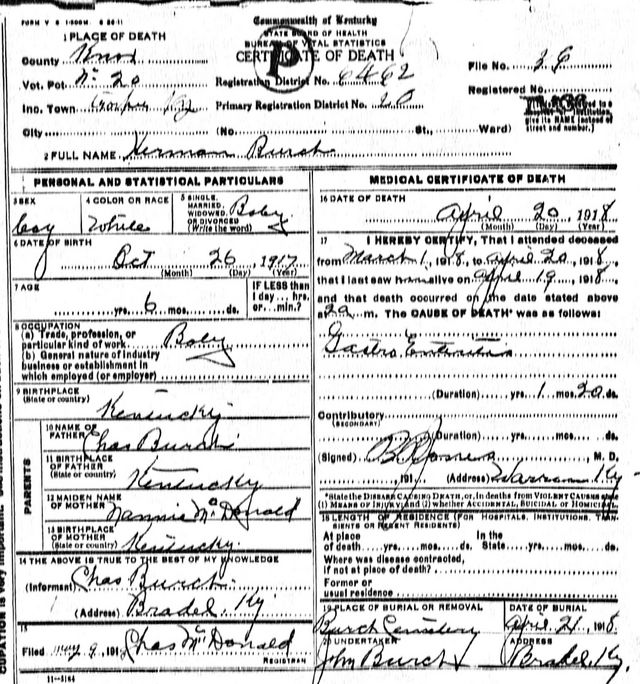 FORM V S
Commonwealth of Kentucky
STATE BOARD OF HEALTH
BUREAU OF VITAL STATISTICS
CERTIFICATE OF DEATH
1 PLACE OF DEATH
County Knox
Vot. Pct. No 20
Registration District No. 6462
File No.
Inc. Town Ky
Primary Registration District No. 20
Registered No.
give its NAME instead of street and number.)
City (No. St., Ward)
2 FULL NAME Herman Burch
PERSONAL AND STATISTICAL PARTICULARS
3 SEX boy
4 COLOR OR RACE White
5 SINGLE, MARRIED, WIDOWED, OR DIVORCED (Write the word) Baby
6 DATE OF BIRTH
Oct 26, 1917
(Month) (Day) (Year)
7 AGE
yrs. 6 mos. ds.
IF LESS than 1 day... hrs. or... min.?
8 OCCUPATION
(a) Trade, profession, or particular kind of work Baby
(b) General nature of industry business or establishment in which employed (or employer)
9 BIRTHPLACE
(State or country) Kentucky
PARENTS
10 NAME OF FATHER Chas Burch
11 BIRTHPLACE OF FATHER
(State or country) Kentucky
12 MAIDEN NAME OF MOTHER Nannie McDonald
13 BIRTHPLACE OF MOTHER
(State or country) Kentucky
14 THE ABOVE IS TRUE TO THE BEST OF MY KNOWLEDGE
(Informant) Chas Burch
(Address) Ky
15
Filed 9, 191 Chas McDonald
REGISTRAR
11-3184
MEDICAL CERTIFICATE OF DEATH
16 DATE OF DEATH
April 20, 1918
(Month) (Day) (Year)
17 I HEREBY CERTIFY, That I attended deceased
from March 1, 1918, to April 20, 1918,
that I last saw him alive on April 19, 1918,
and that death occurred on the date stated above
at 2 a m. The CAUSE OF DEATH* was as follows:
Gastro Enteritis
(Duration) yrs. 1 mos. 20 ds.
Contributory
(SECONDARY)
(Duration) yrs. mos. ds.
(Signed) M. D.
, 191 (Address) Ky
*State the DISEASE CAUSING DEATH, or, in deaths from VIOLENT CAUSES state
(1) MEANS OF INJURY; and (2) whether ACCIDENTAL, SUICIDAL or HOMICIDAL.
18 LENGTH OF RESIDENCE (FOR HOSPITALS, INSTITUTIONS, TRANSIENTS OR RECENT RESIDENTS)
At place of death yrs. mos. ds. In the State yrs. mos. ds.
Where was disease contracted, if not at place of death?
Former or usual residence
19 PLACE OF BURIAL OR REMOVAL
Burch Cemetery
DATE OF BURIAL
April 21, 1918
20 UNDERTAKER
John Burch
ADDRESS
Ky